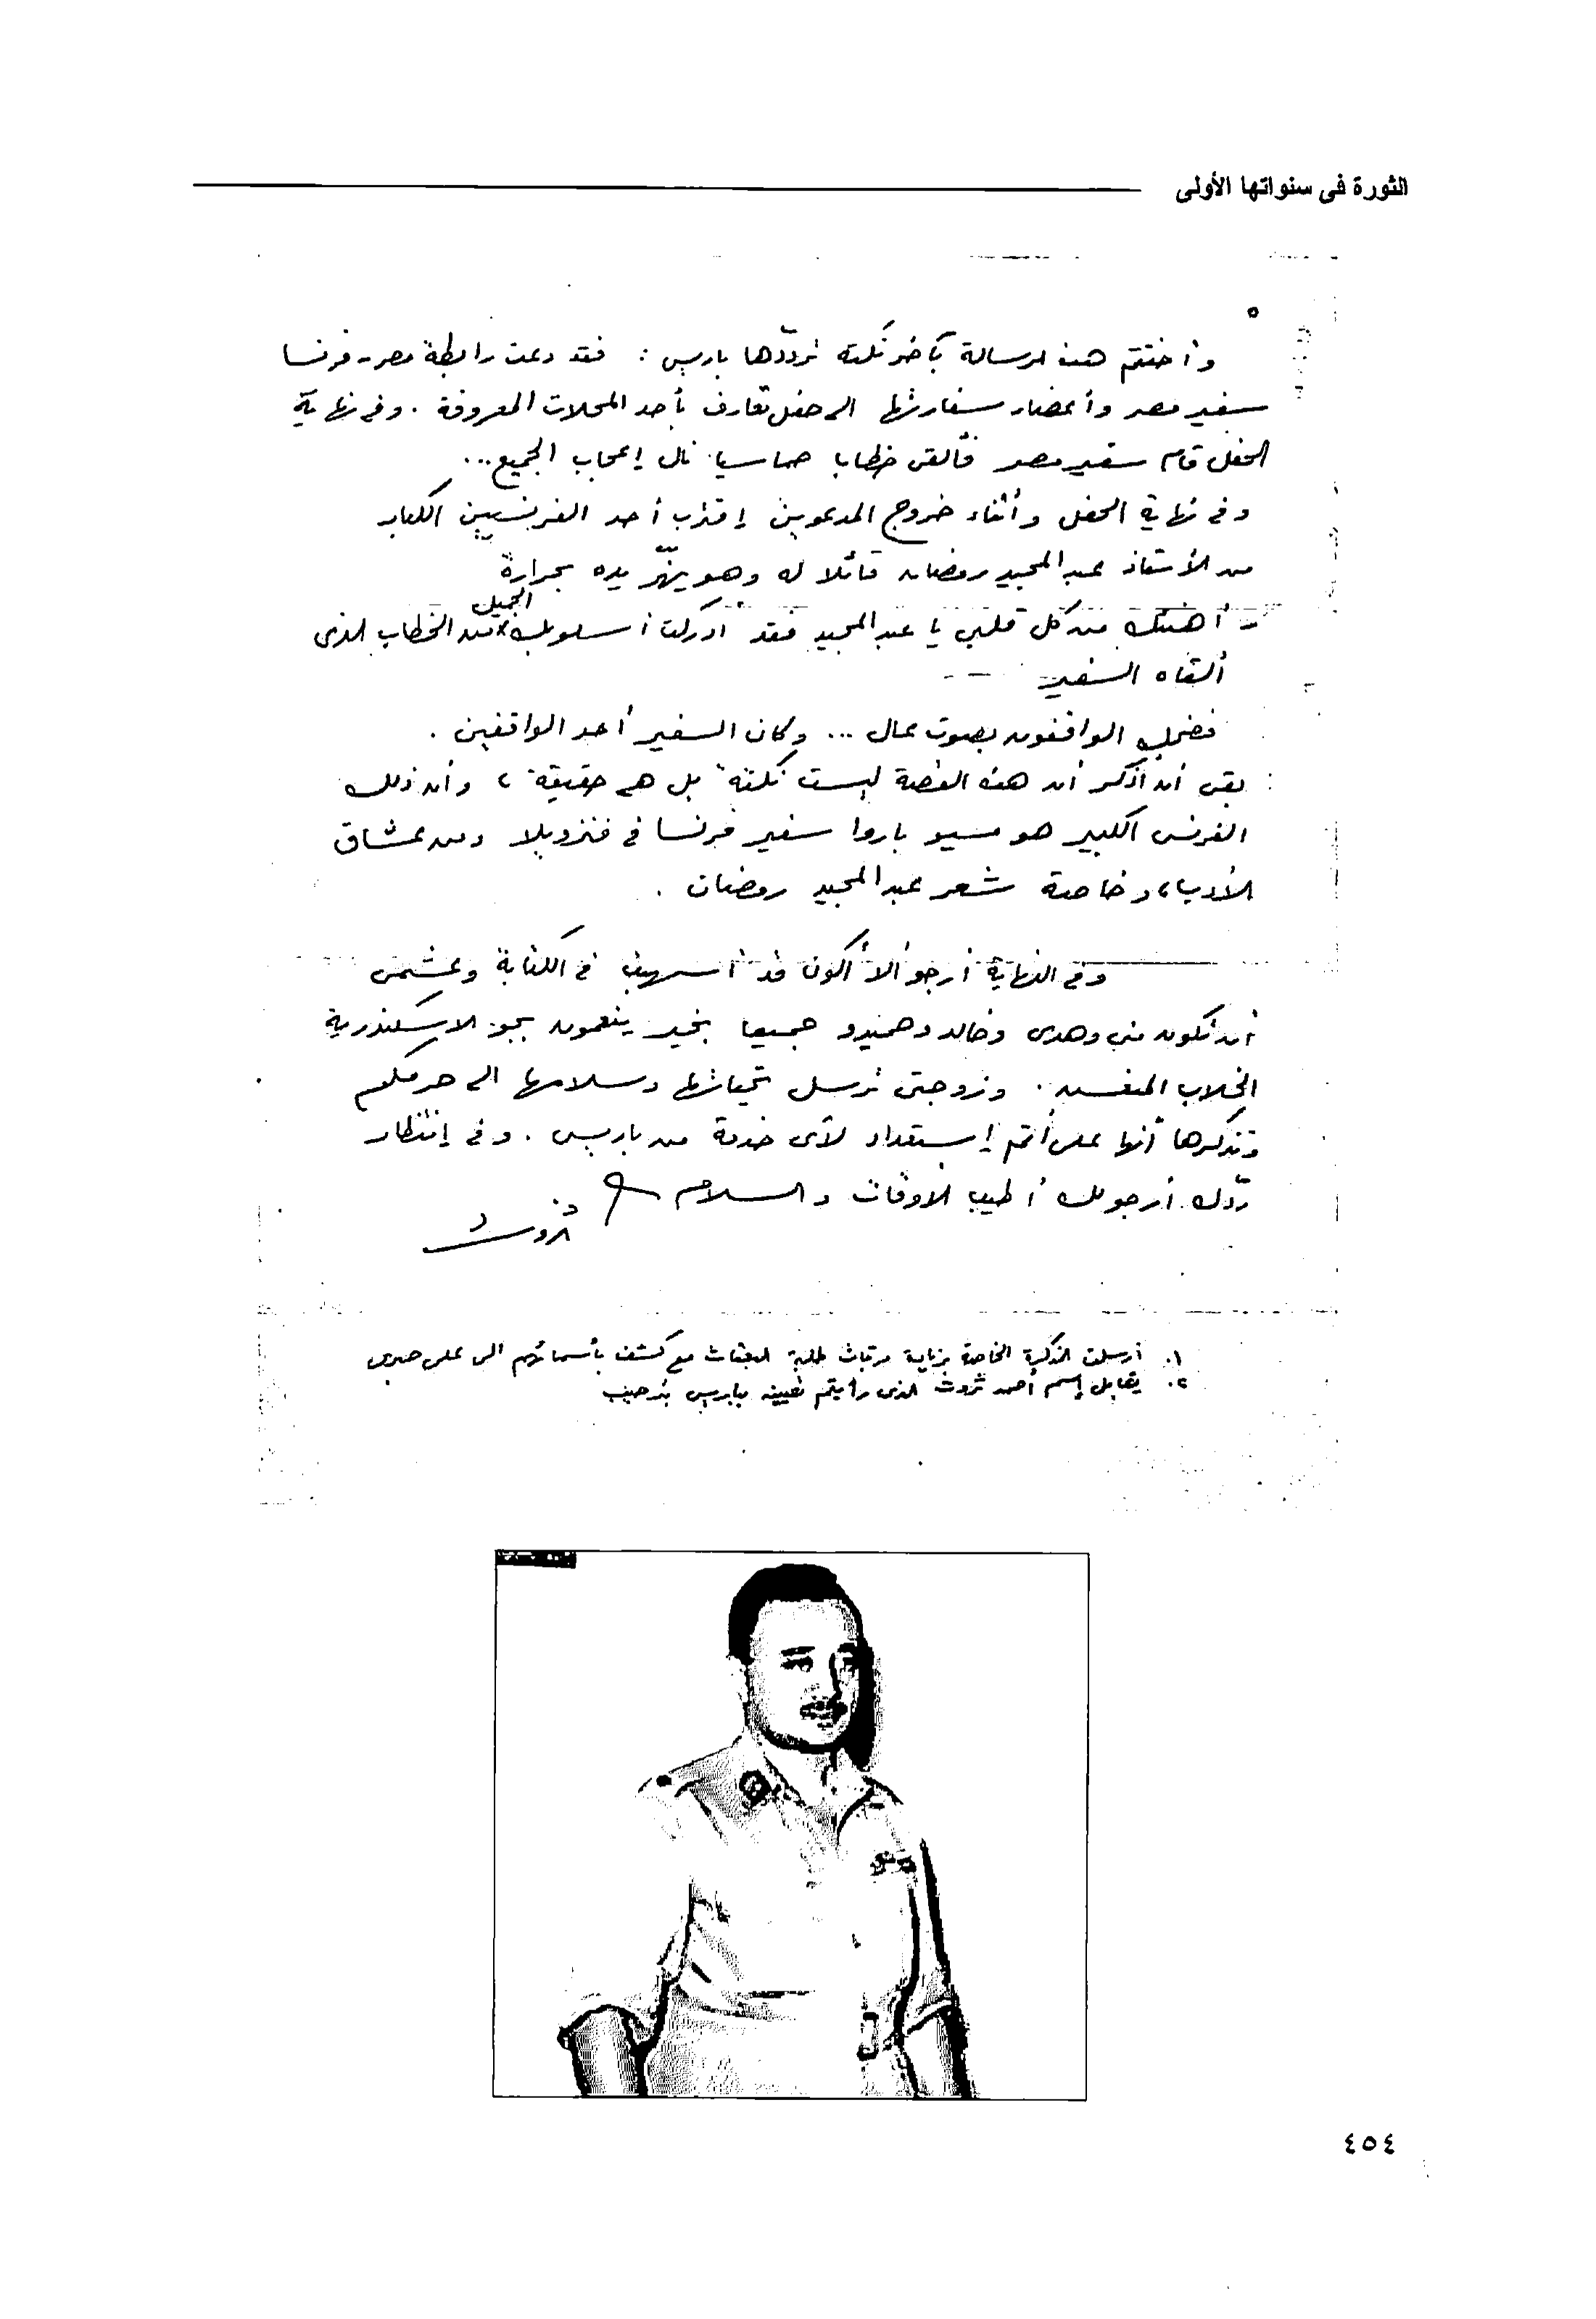 الثورة فى سنواتها الأولى
٥
وأختتم هذه الرسالة بآخر نكتة تردّدها باريس : فقد دعت رابطة مصر - فرنسا
سفير مصر وأعضاء سفارتها الى حفل تعارف بأحد المحلات المعروفة . وفى نهاية
الحفل قام سفير مصر فألقى خطابا حماسيا نال إعجاب الجميع ...
وفى نهاية الحفل وأثناء خروج المدعوين إقترب أحد الفرنسيين الكبار
من الأستاذ عبد المجيد رمضان قائلا له وهو يهزّ يده بحرارة
- أهنئك من كل قلبى يا عبد المجيد فقد أدركت أسلوبك الجميل من الخطاب الذى
ألقاه السفير
فضحك الواقفون بصوت عال ... وكان السفير أحد الواقفين .
بقى أن أذكر أن هذه القصة ليست نكتة بل هى حقيقة ، وأن ذلك
الفرنسى الكبير هو مسيو باروا سفير فرنسا فى فنزويلا ومن عشاق
الأدب ، وخاصة شعر عبد المجيد رمضان .
وفى النهاية أرجو ألا أكون قد أسهبت فى الكتابة وعشمى
أن تكون منى وهدى وخالد وحميدو جميعا بخير ينعمون بجو الاسكندرية
الخلاب المنعش . وزوجتى ترسل تحياتها وسلامها الى حرمكم
وتذكرها أنها على أتم إستعداد لأى خدمة من باريس . وفى إنتظار
ردّك أرجو لك أطيب الأوقات والسلام
ثروت
١. أرسلت المذكرة الخاصة بزيادة مرتبات طلبة البعثات مع كشف بأسمائهم الى على صبرى
٢. يقابل إسم أحمد ثروت الذى تعيينه بباريس بترحيب
٤٥٤